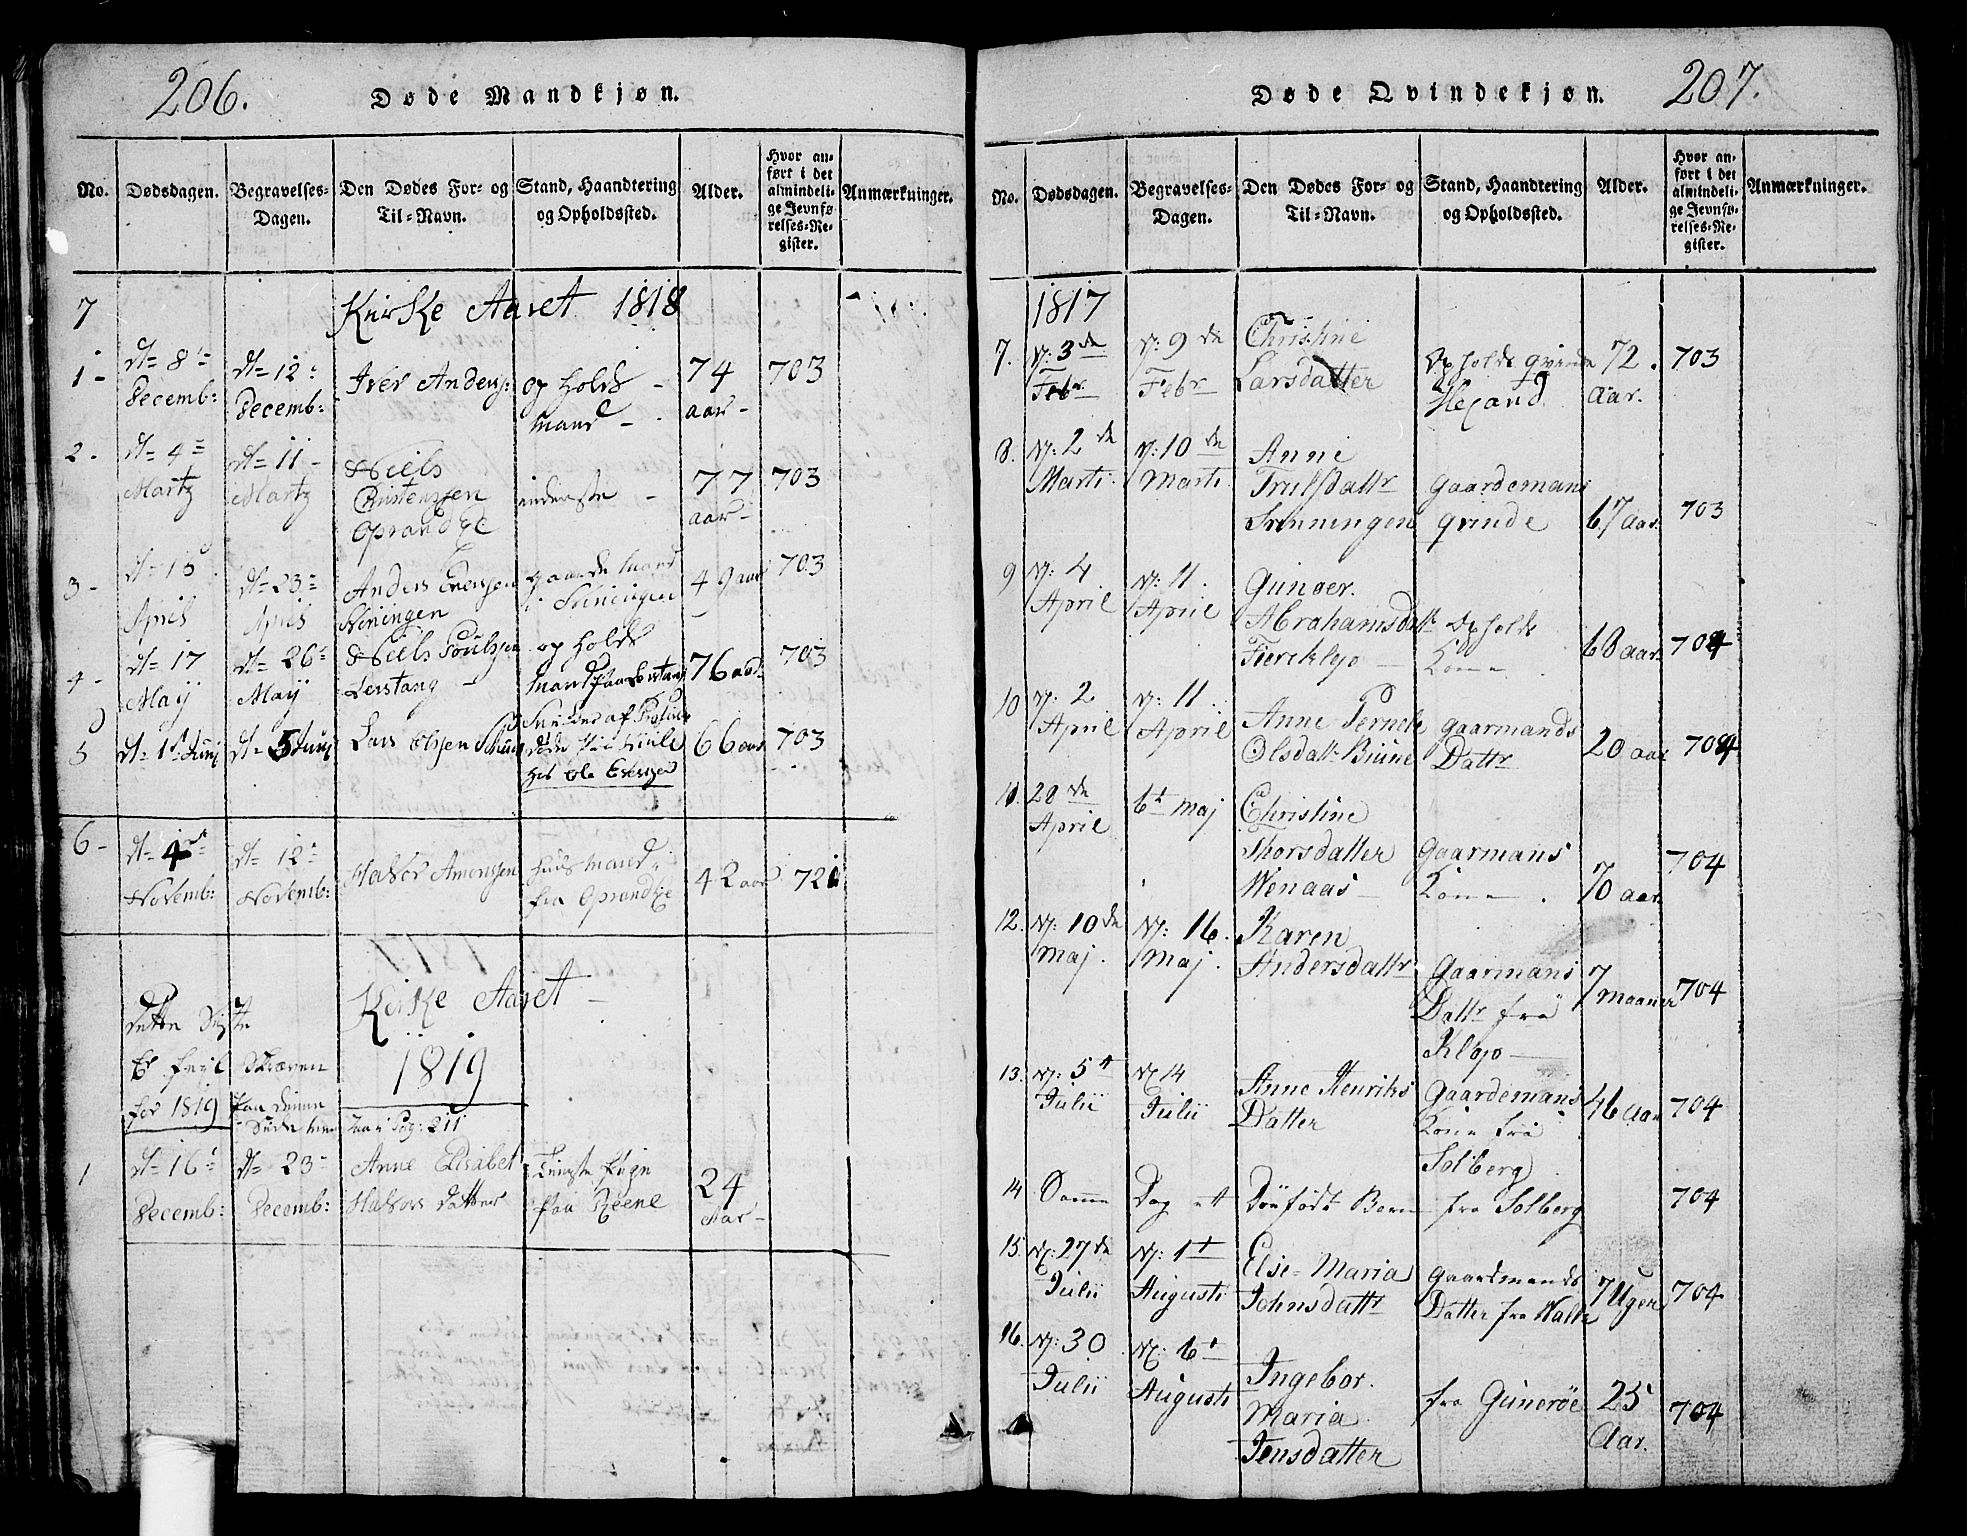 206.
Døde Mandkjøn.
No.
Dødsdagen.
Begravelses-
Dagen.
Den Dødes For- og
Til-Navn.
Stand, Haandtering
og Opholdssted.
Alder.
Hvor an-
ført i det
almindeli-
ge Jevnfø-
relses-Re-
gister.
Anmærkninger.
7
Kirke Aaret 1818
1-
dt= 8
Decemb:
dt= 12
Decemb:
Iver Anders:
op holds
mand -
74
aar-
703
2.
dt= 4
Martz
dt= 11-
Martz
Niels
Christenssen
Oprandke
inderste -
77
aar-
703
3-
dt= 15
April
dt= 23
April
Anders
gaarde mand
49 aar
703
4-
dt= 17
Maij
dt= 26
Maij
Niels Poulssen
Lerstang -
op holds
mand paa Lerstang
76 aar
703
5
dt= 1 Junij
dt= 5 Junij
Lars Olssen
66 aar
703
6-
dt= 4
Novemb:
dt= 12
Novemb:
Halvor
huus mand
fra Oprandke
42 aar
721
Kirke Aaret -
1819
Dette Siste
Er feyl Skreven
for 1819 paa denne
Side
Pag: 211
1
dt= 16
Decemb:
dt= 23
Decemb:
Anne Elisabet
Halvors datter
Tieneste Pige
paa Reene
24
Aar-
207.
Døde Qvindekjøn.
No.
Dødsdagen.
Begravelses-
Dagen.
Den Dødes For- og
Til-Navn.
Stand, Haandtering
og Opholdssted.
Alder.
Hvor an-
ført i det
almindeli-
ge Jevnfø-
relses-Re-
gister.
Anmærkninger.
1817
7.
D: 3de
Febr
D: 9de
Febr
Christine
Larsdatter
Opholds qvinde
72.
Aar.
703
8.
D: 2de
Marti
D: 10de
Marti
Anne
Trulsdattr
Srinningen
Gaardemans
qvinde
67 Aar.
703
9
D: 4
April
D: 11.
April
Gunoer.
Abrahamsdattr
Opholds
Kone
68 aar.
704
10
D: 2
April
D: 11.
April
Anne Pernele
Olsdattr Biune
gaarmands
Dattr
20 aar
704
11.
28de
April
6t Maj
Christine
Thorsdatter
Wenaas
Gaarmans
Kone
70 aar.
704
12.
D: 10de
Maj.
D: 16.
Maj.
Karen
Andersdattr
Gaarmans
Dattr fra
Klopo
7
maaner
704
13.
D: 5t
Julii
D: 14
Julii
Anne Henriks
Datter
Gaardemans
Kone fra
Solberg
46 Aar
704
14
Samme
Dag et
Dødfødt Barn
fra Solberg
704
15.
D: 27de
Julii
D: 1t
Augusti
Else-Maria
Johnsdattr
Gaardmands
Datter fra Walle
7 Uger
704
16.
D: 30
Julii
D: 6t
Augusti
Ingebor.
Maria
Jensdatter
fra Guneröe
25
Aar.
704